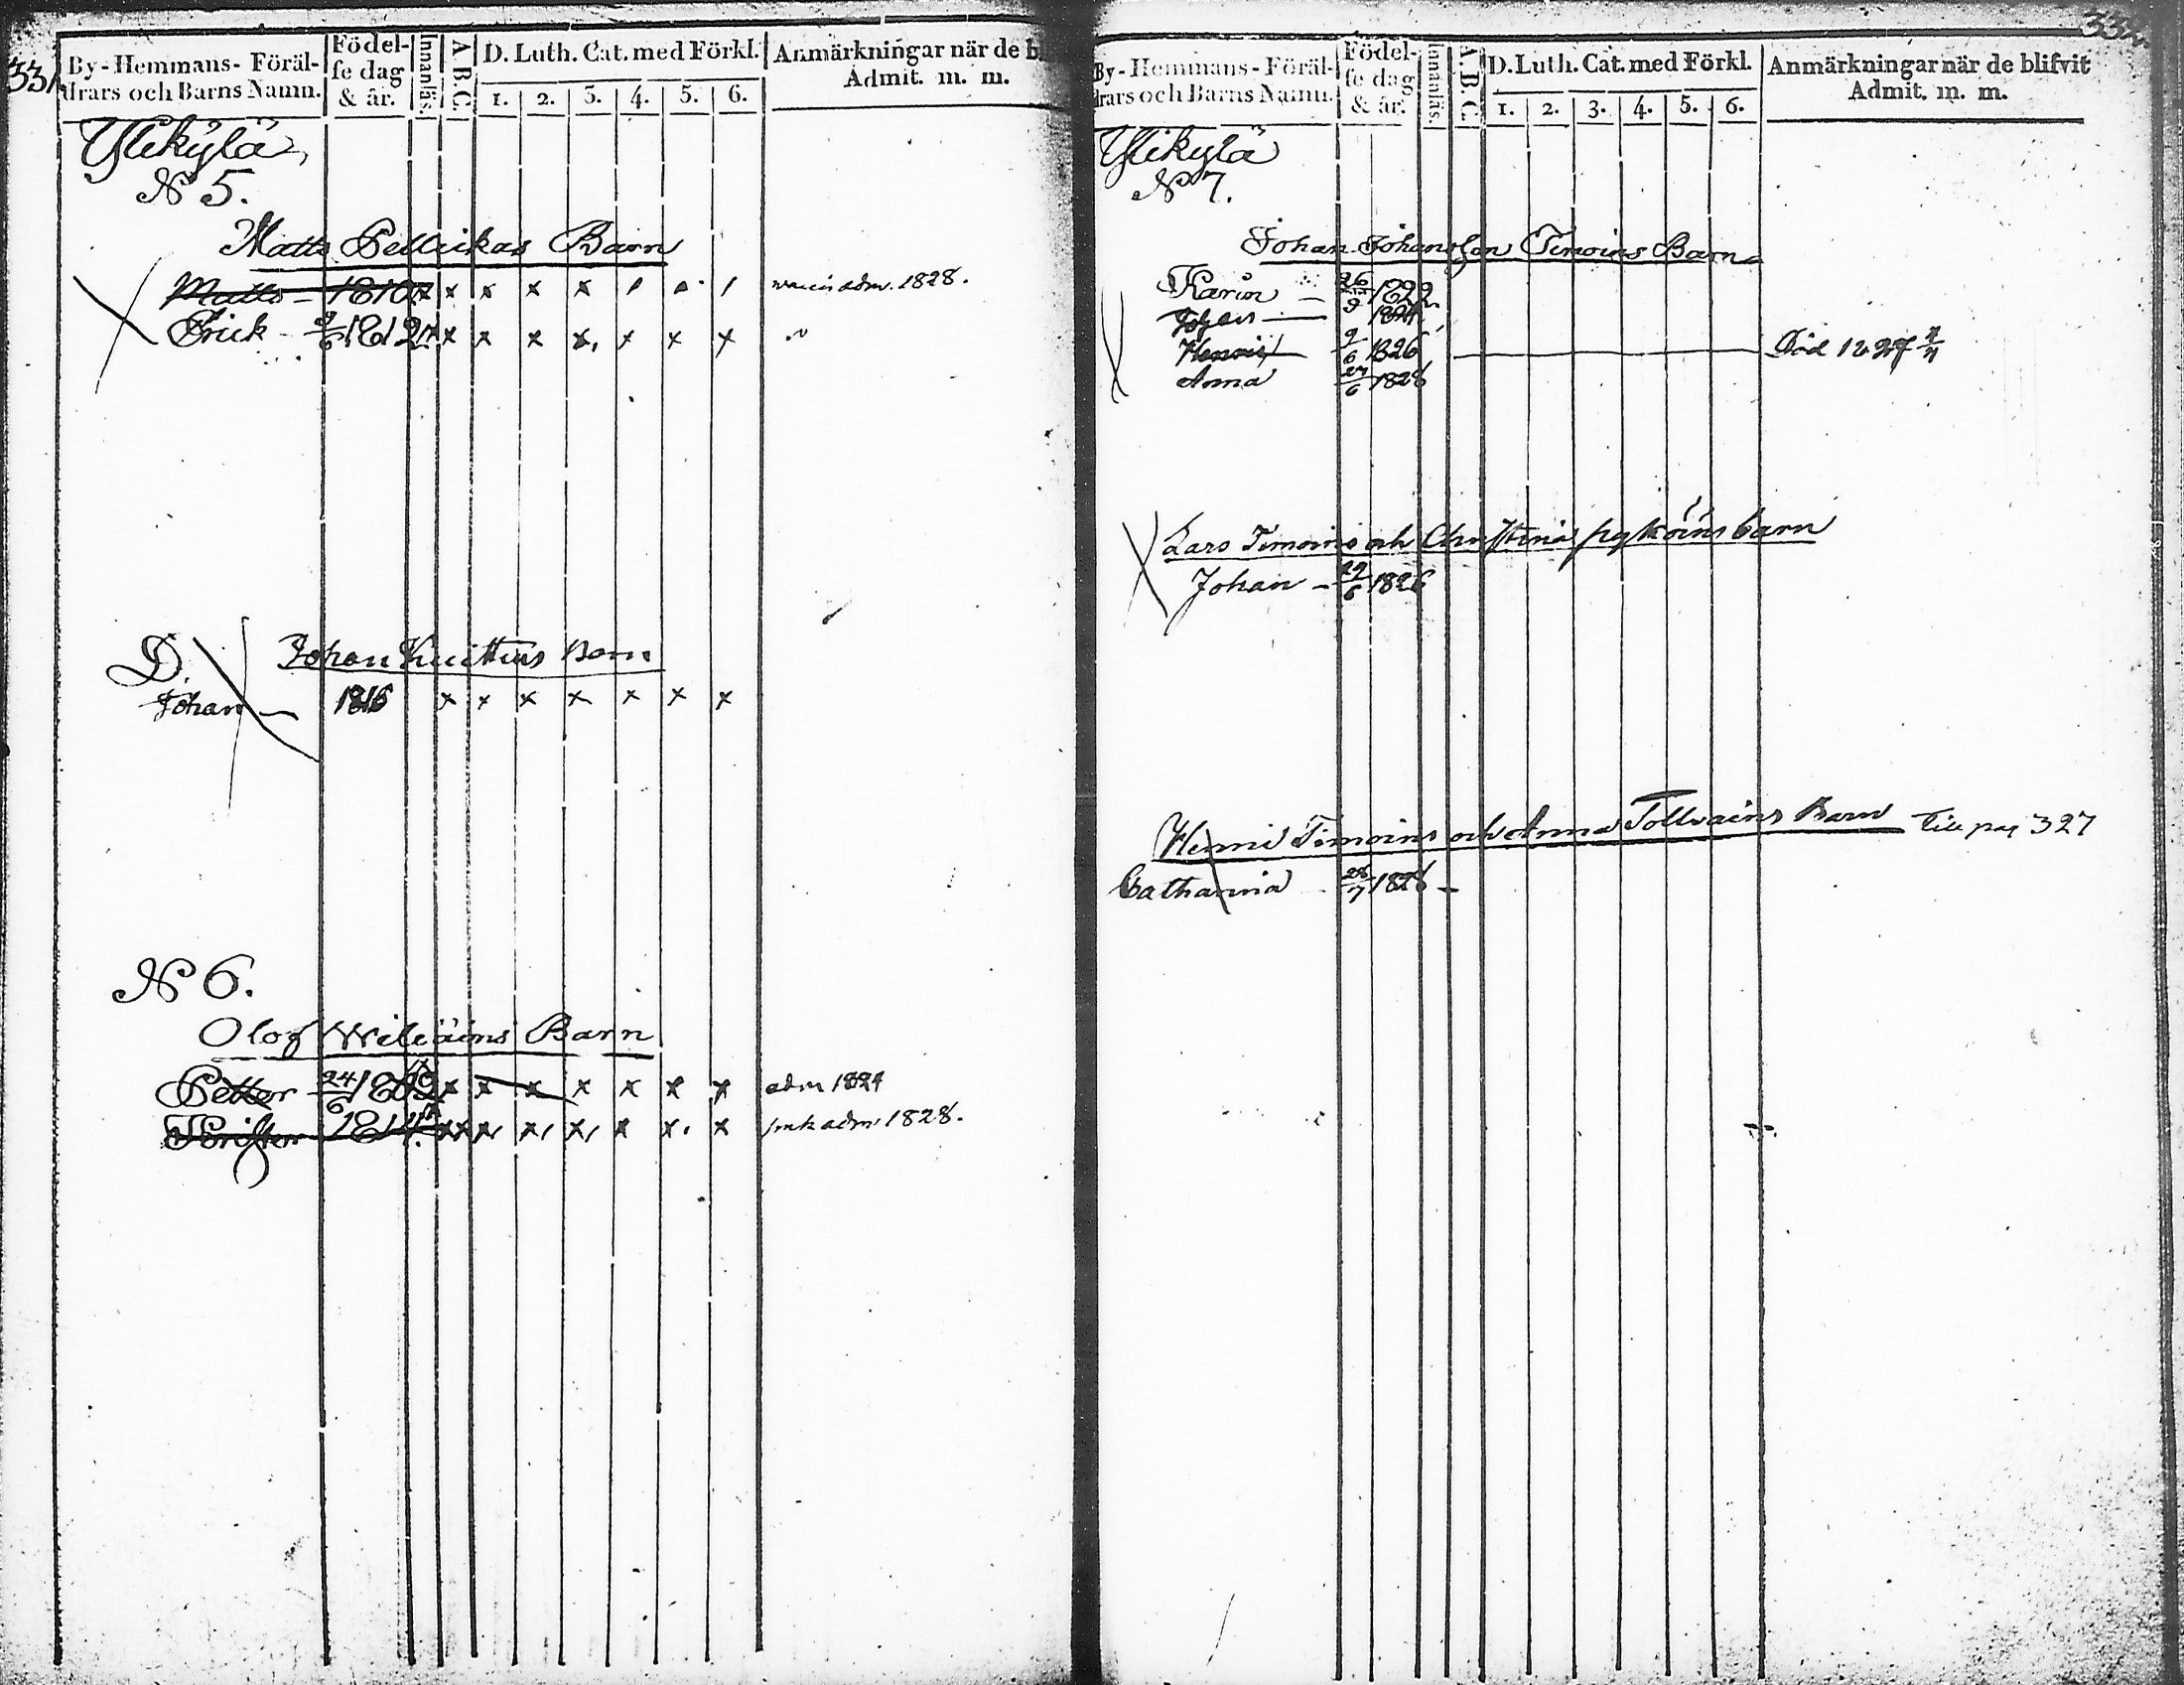 331.
By-Hemmans- Föräl-
drars och Barns Namn.
Födel-
se dag
& år.
Innanläs.
A.B.C.
D. Luth. Cat. med Förkl.
1. 2. 3. 4. 5. 6.
Anmärkningar när de b
Admit. m. m.
Ylikylä,
N 5.
Matts Pellickas Barn
Matts - 1810 x x x x x
adm. 1828.
Erick - 1812 x x x x x x x
D.
Johan Knittus Barn
Johan - 1816 x x x x x x x
N 6.
Olof Wiliäins Barn
Petter 24/6 1809 x x x x x x x adm 1824
Krister 1814. x x x x x x x x adm 1828.
332.
By-Hemmans-Föräl-
drars och Barns Namn.
Födel-
se dag
& år.
Innanläs.
A.B.C.
D. Luth. Cat. med Förkl.
1. 2. 3. 4. 5. 6.
Anmärkningar när de blifvit
Admit. m. m.
Ylikylä
N 7.
Johan Johansson Timoins Barn
Karin - 1822
1824
Henric 9/6 1826 Död 1827
Anna 27/6 1828
Lars Timoins och Christina barn
Johan - 22/6 1826
Henric Timoins och Anna Tollvains Barn Till pag 327
Catharina 28/7 1828 -